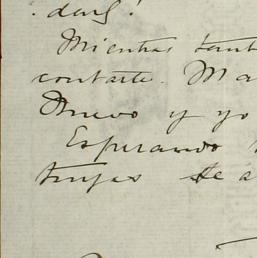 Mientras tant
contarte. Ma
Nuevo y yo
Esperando
tengas te a